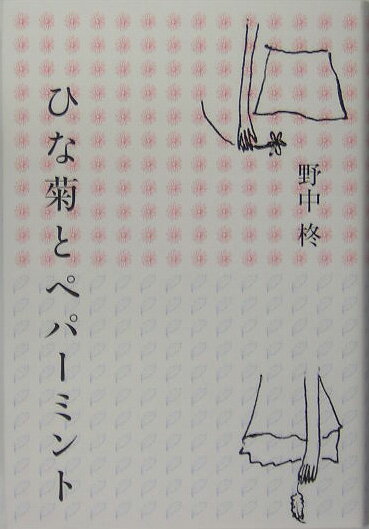 ひな菊とペパーミント
野中 柊